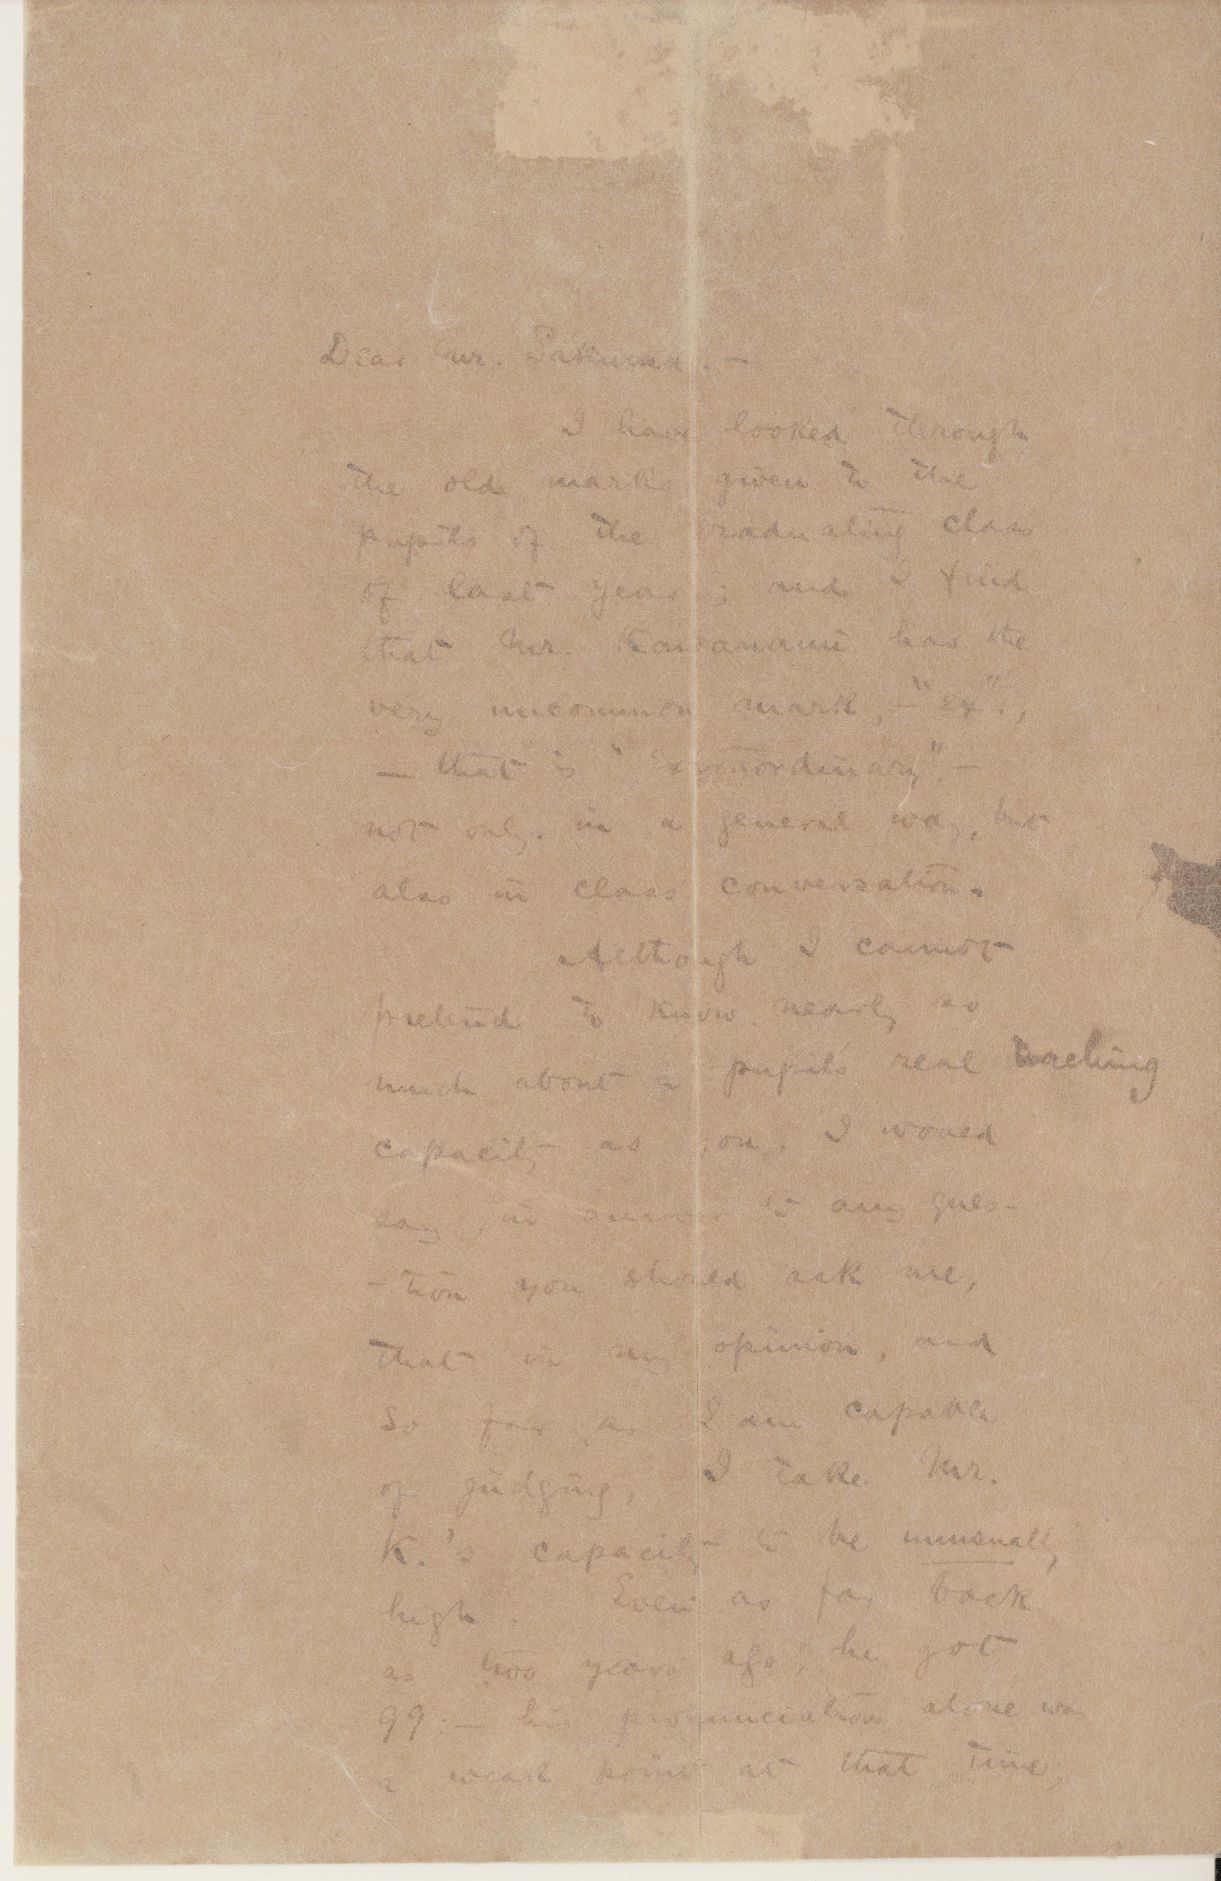 Dear Mr. Sakuma. —
I have looked through
the old marks given to the
pupils of the graduating class
of last year; and I find
that Mr. Kawanami has the
very uncommon mark, — "Ex".,
— that is "Extraordinary", —
not only in a general way, but
also in class conversation.
Although I cannot
pretend to know nearly so
much about a pupil's real teaching
capacity as you, I would
say, in answer to any ques-
-tion you should ask me,
that in my opinion, and
so far as I am capable
of judging, I take Mr.
K.'s capacity to be unusually
high. Even as far back
as two years ago, he got
99: — his pronunciation alone was
a weak point at that time,